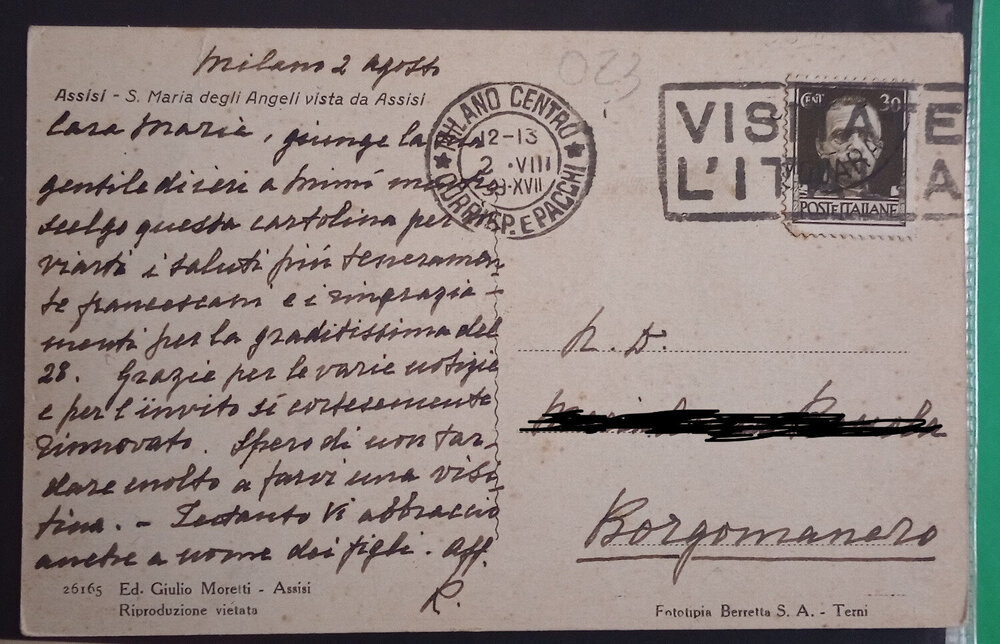 Milano 2 agosto
Assisi - S. Maria degli Angeli vista da Assisi
Cara Maria, giunge la tua
gentile di ieri a Mimì mentre
scelgo questa cartolina per
viarti i saluti più teneramen-
te francescani e i ringrazia-
menti per la graditissima del
28. Grazie per le varie notizie
e per l'invito sì cortesemente
rinnovato. Spero di non tar-
dare molto a farvi una visi-
tina. - Intanto Vi abbraccio
anche a nome dei figli. Aff.
R.
26165 Ed. Giulio Moretti - Assisi
Riproduzione vietata
023
MILANO CENTRO
12-13
2 · VIII
39·XVII
CORRISP. E PACCHI
VISITATE
L'ITALIA
CENT 30
POSTE ITALIANE
N. D.
Borgomanero
Fototipia Berretta S. A. - Terni